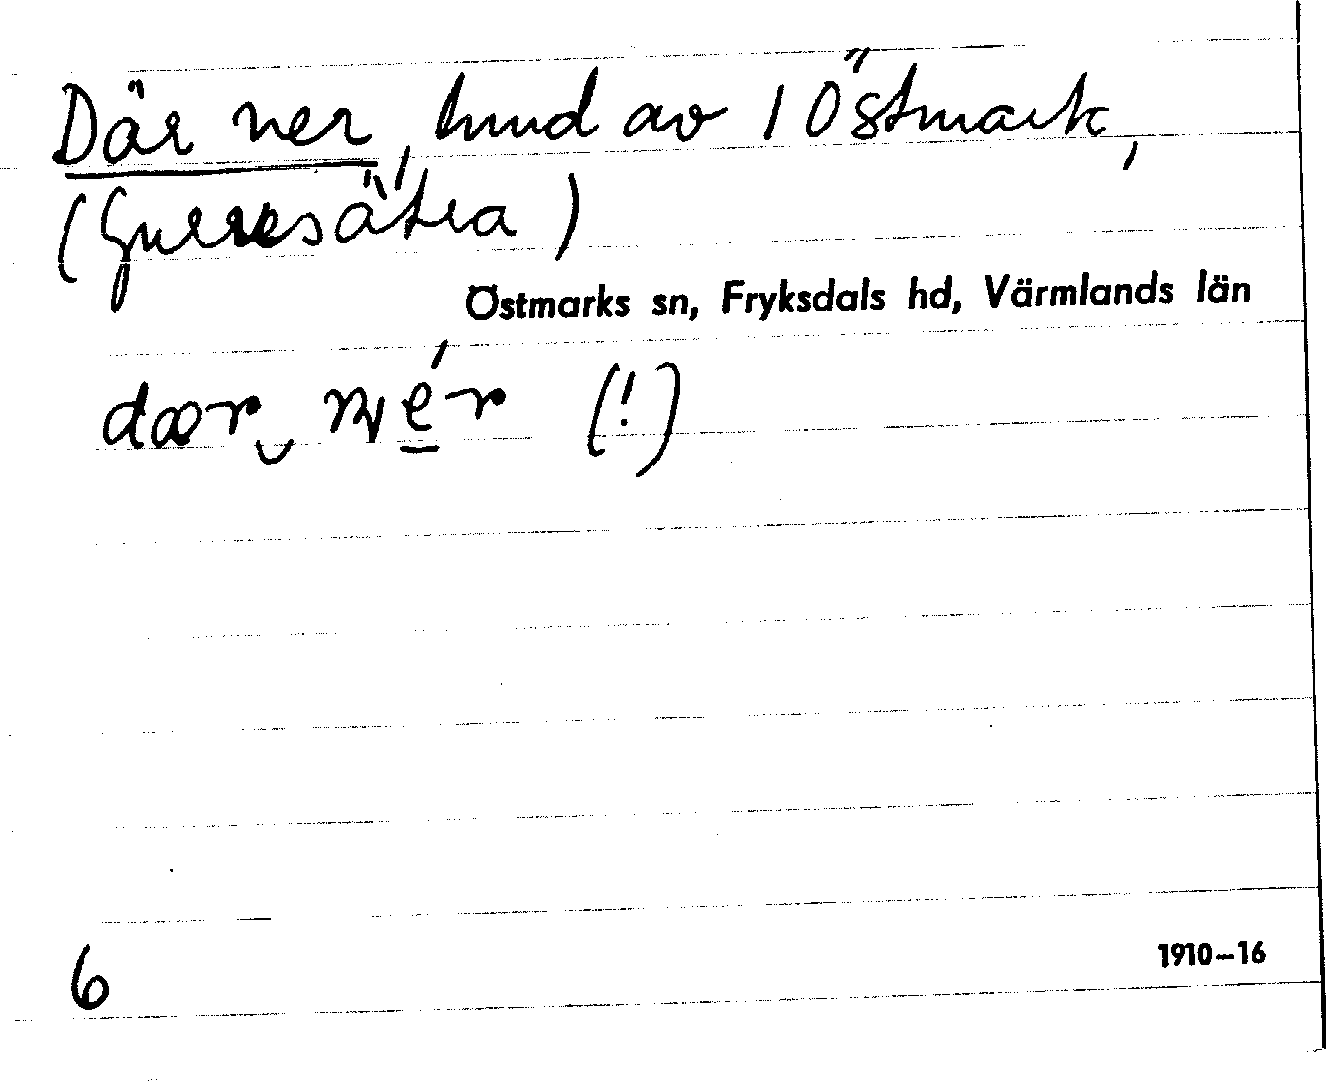 Där ner, hmd av 1 Östmark,
Östmarks sn, Fryksdals hd, Värmlands län
dær (!)
6
1910–16